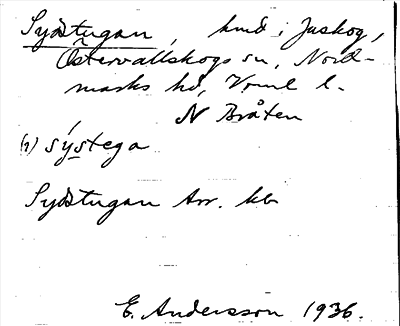 Sydstugan, hmd i Juskog,
Östervallskogs sn, Nord-
marks hd, Vrml l.
N Bråten
(1) sýstega
Sydstugan Arr. kb
E. Andersson 1936.